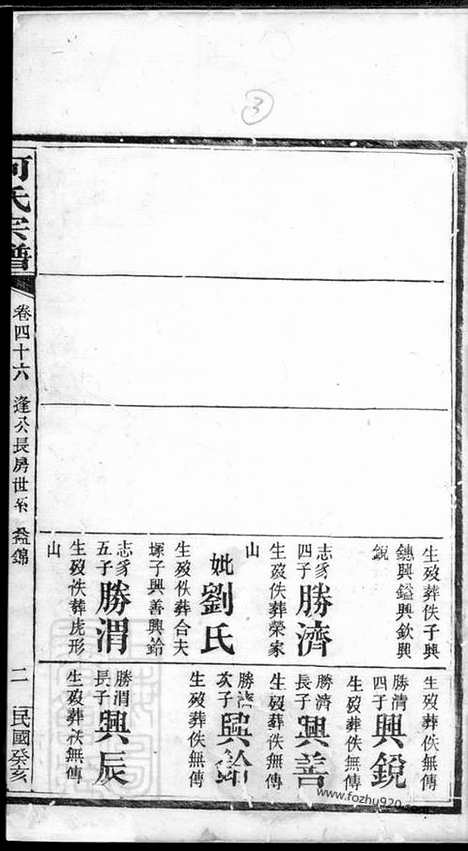 3
生歿葬佚子興
鏸興鎰興欽興
銳
志彣四子勝濟
生歿佚葬榮家
山
妣劉氏
生歿佚葬合夫
塚子興善興鈴
志彣五子勝渭
生歿佚葬虎形
山
生歿葬佚無傳
勝清四子興銳
生歿葬佚無傳
勝濟長子興善
生歿葬佚無傳
勝濟次子興鈴
生歿葬佚無傳
勝渭長子興辰
生歿葬佚無傳
何氏宗譜
卷四十六 逢公長房世系 益錦
二 民國癸亥
www.fozhu920.com